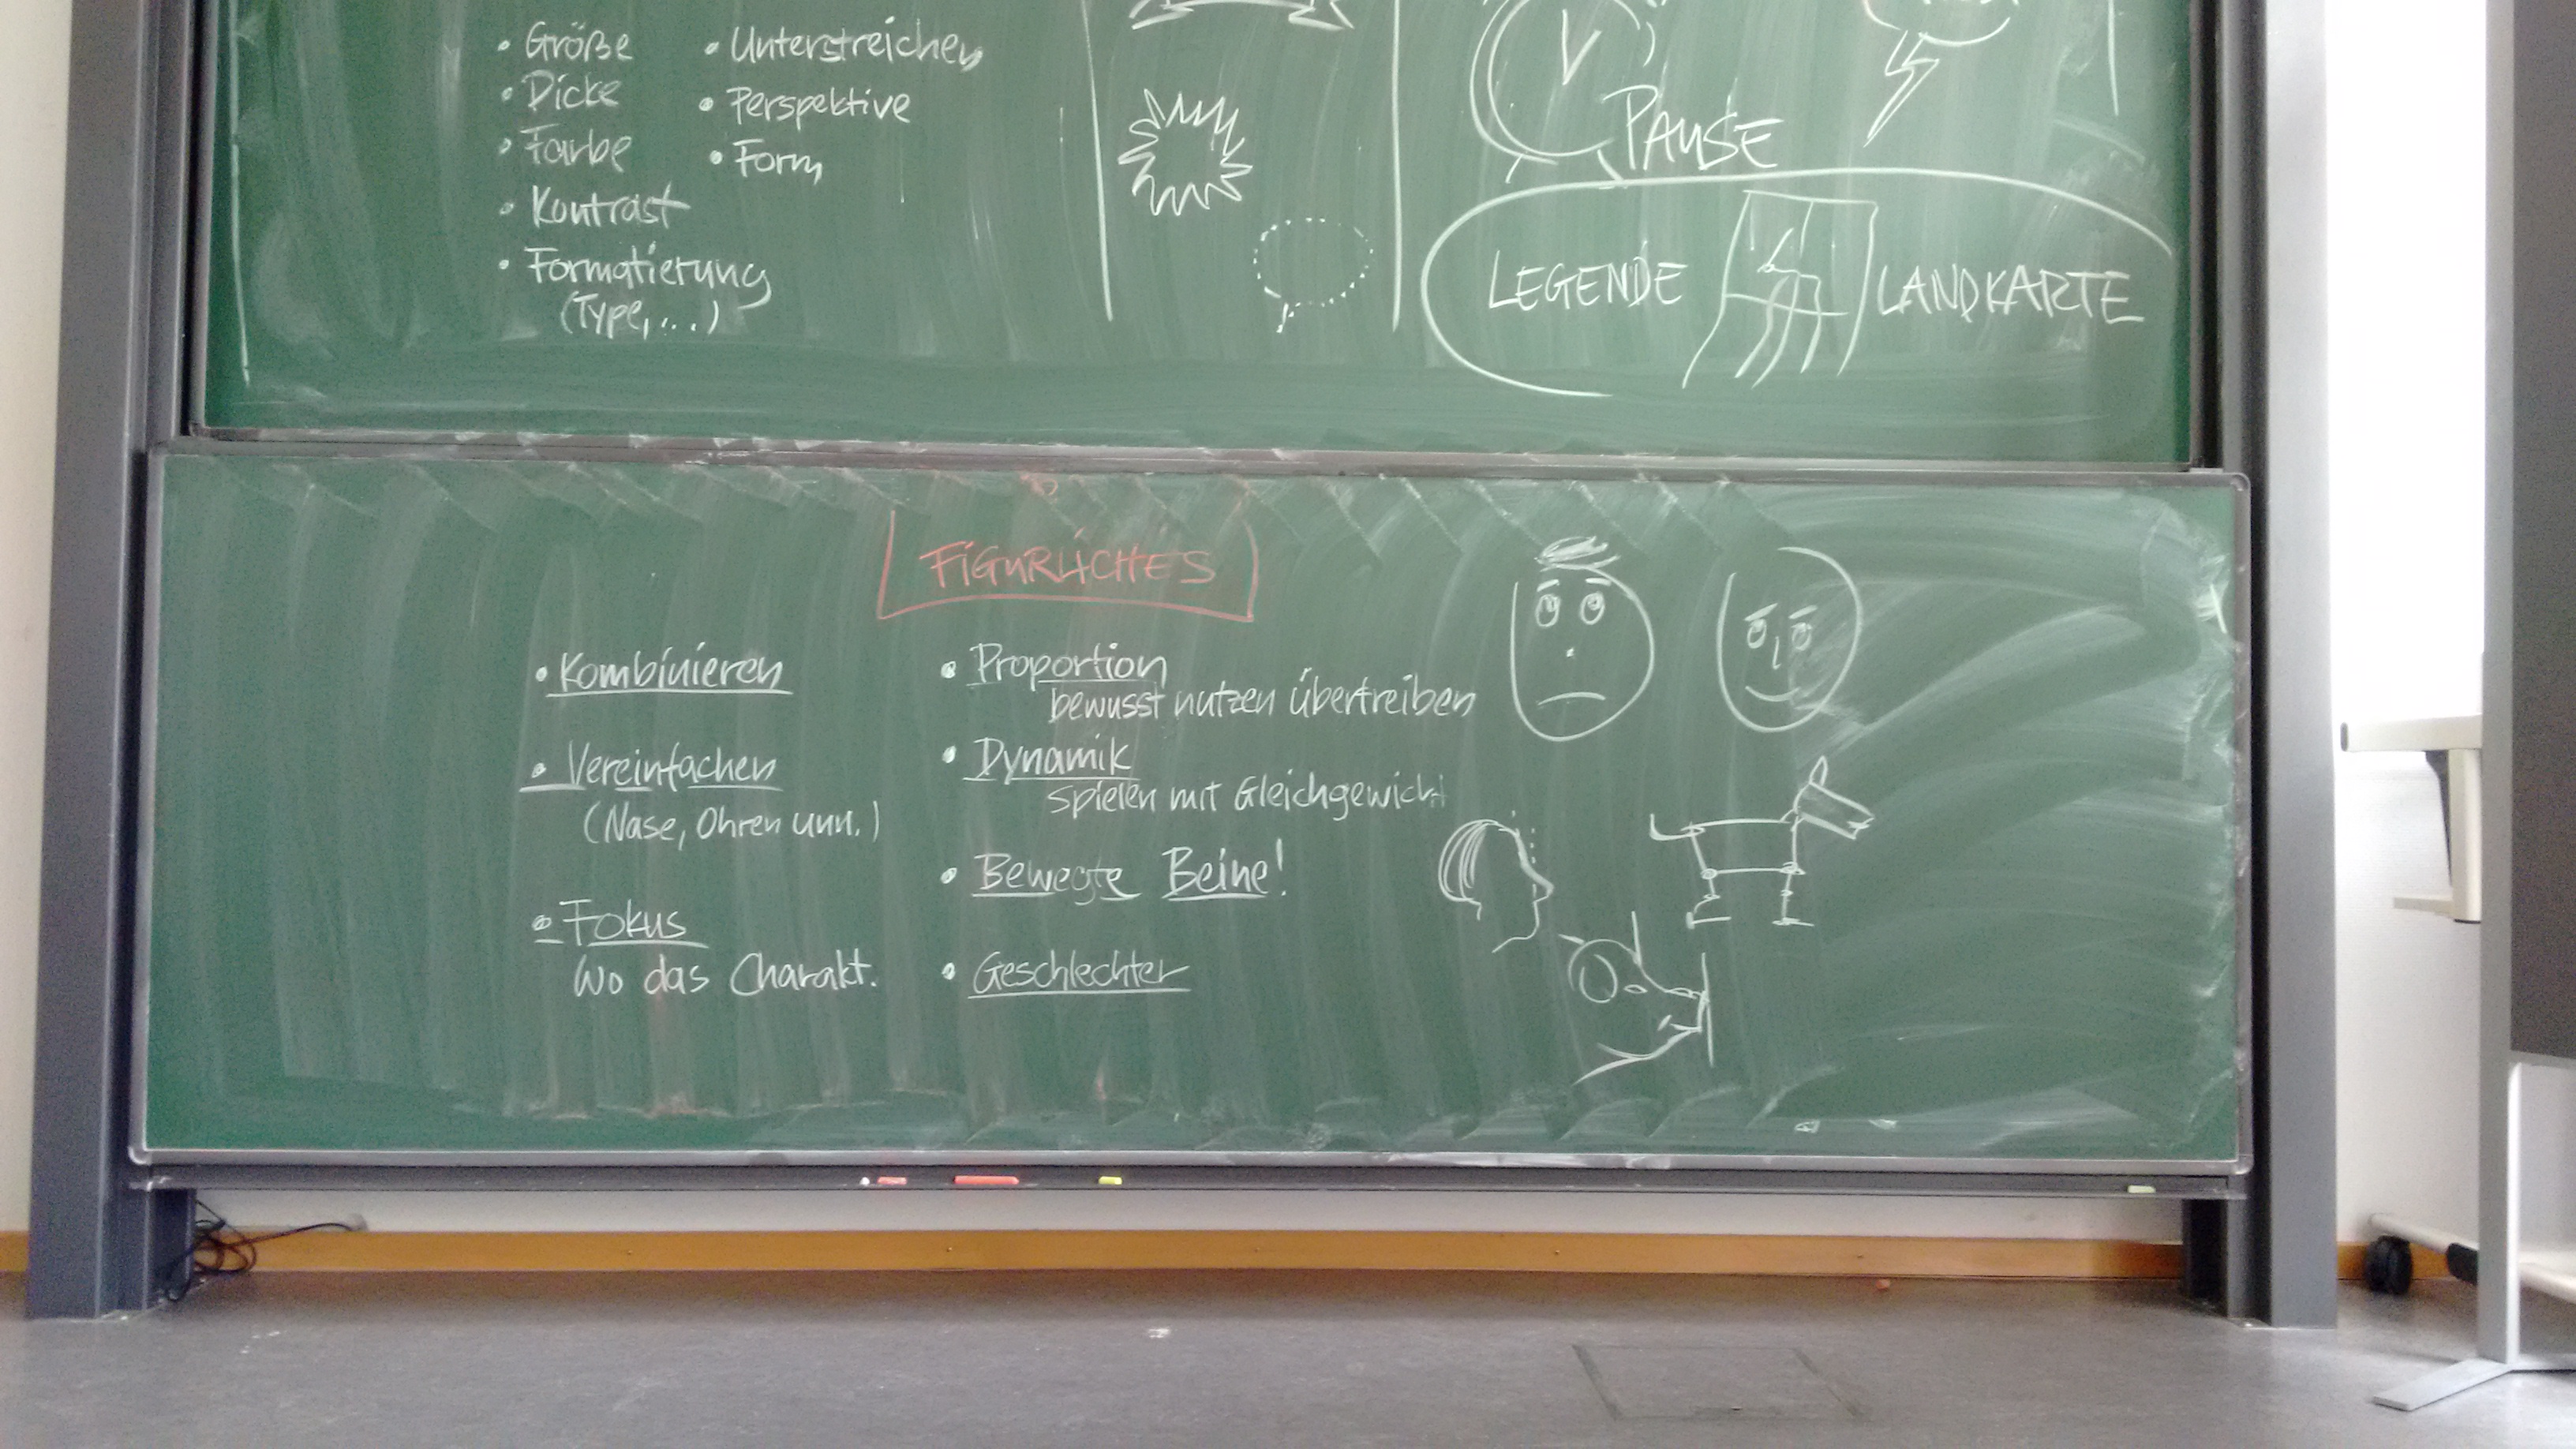 • Größe
• Dicke
• Farbe
• Kontrast
• Formatierung
(Type, ...)
• Unterstreichen
• Perspektive
• Form
PAUSE
LEGENDE
LANDKARTE
FIGURLICHES
• Kombinieren
• Vereinfachen
(Nase, Ohren unn.)
• Fokus
Wo das Charakt.
• Proportion
bewusst nutzen übertreiben
• Dynamik
spielen mit Gleichgewicht
• Bewegte Beine!
• Geschlechter